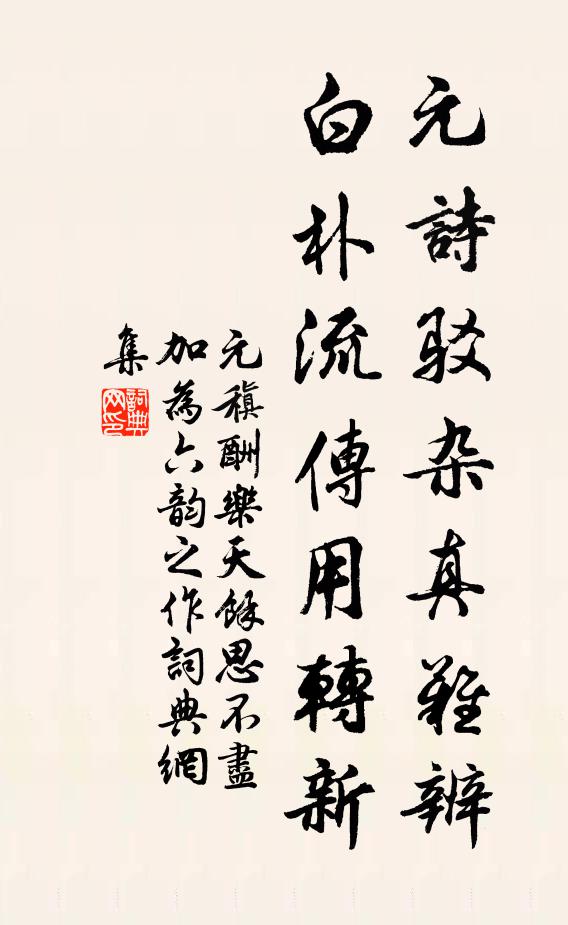 元詩駁杂真難辨
白朴流傳用轉新
元稹酬樂天餘思不盡
加為六韵之作詞典網
集
詞典
网印